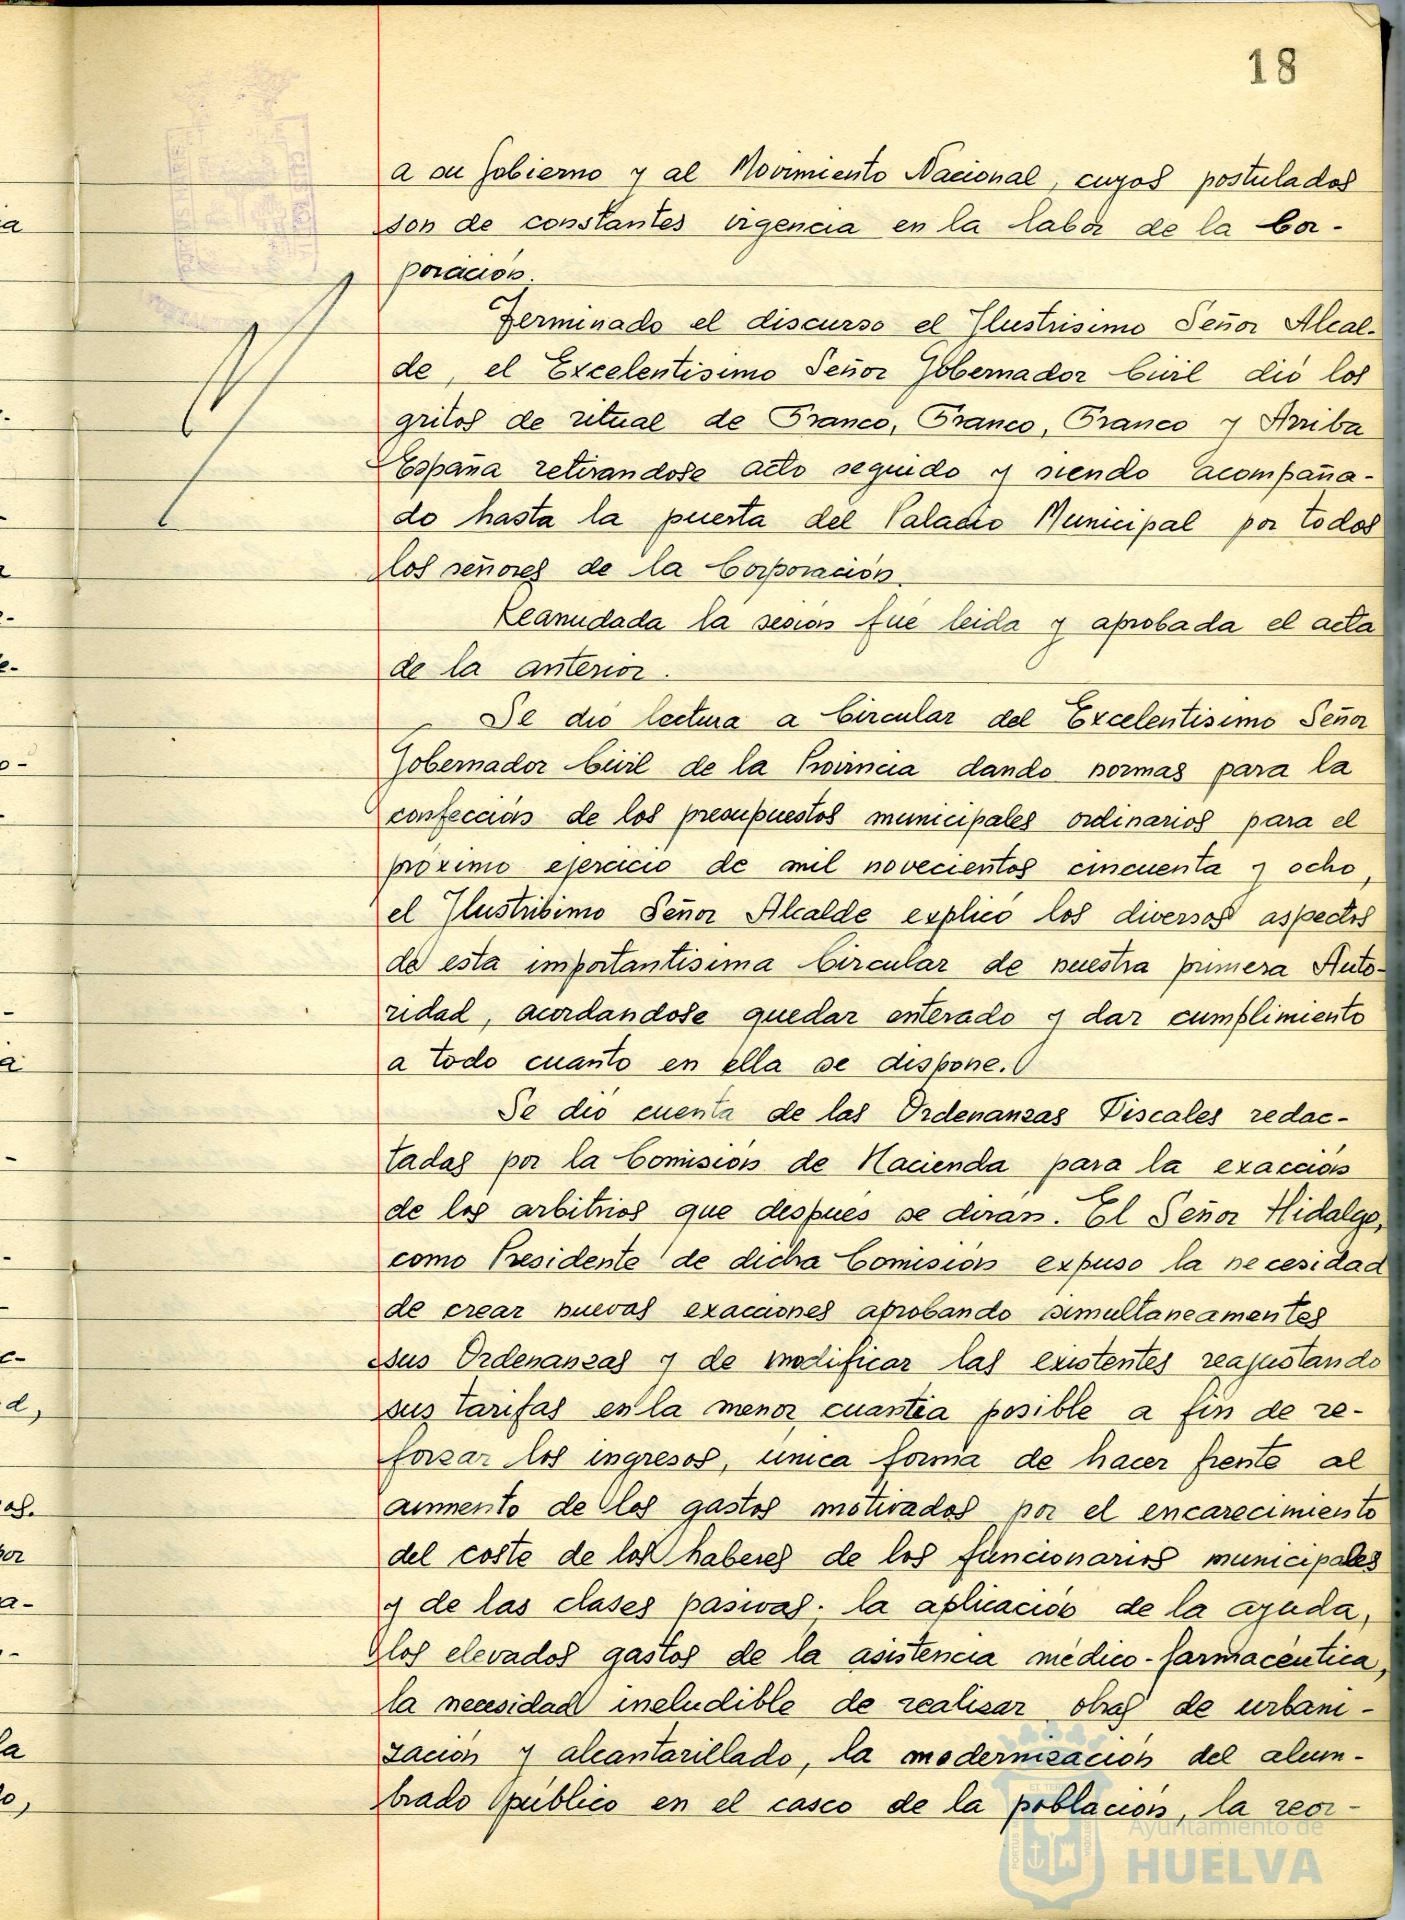 18
a su Gobierno y al Movimiento Nacional, cuyos postulados
son de constantes vigencia en la labor de la Cor-
poración.
Terminado el discurso el Ilustrisimo Señor Alcal-
de, el Excelentisimo Señor Gobernador Civil dió los
gritos de ritual de Franco, Franco, Franco y Arriba
España retirandose acto seguido y siendo acompaña-
do hasta la puerta del Palacio Municipal por todos
los señores de la Corporación.
Reanudada la sesión fué leida y aprobada el acta
de la anterior.
Se dió lectura a Circular del Excelentisimo Señor
Gobernador Civil de la Provincia dando normas para la
confección de los presupuestos municipales ordinarios para el
próximo ejercicio de mil novecientos cincuenta y ocho,
el Ilustrisimo Señor Alcalde explicó los diversos aspectos
de esta importantisima Circular de nuestra primera Auto-
ridad, acordandose quedar enterado y dar cumplimiento
a todo cuanto en ella se dispone.
Se dió cuenta de las Ordenanzas Fiscales redac-
tadas por la Comisión de Hacienda para la exacción
de los arbitrios que después se dirán. El Señor Hidalgo,
como Presidente de dicha Comisión expuso la necesidad
de crear nuevas exacciones aprobando simultaneamentes
sus Ordenanzas y de modificar las existentes reajustando
sus tarifas en la menor cuantia posible a fin de re-
forzar los ingresos, única forma de hacer frente al
aumento de los gastos motivados por el encarecimiento
del coste de los haberes de los funcionarios municipales
y de las clases pasivas; la aplicación de la ayuda,
los elevados gastos de la asistencia médico-farmacéutica,
la necesidad ineludible de realizar obras de urbani-
zación y alcantarillado, la modernización del alum-
brado público en el casco de la población, la reor-
Ayuntamiento de
HUELVA